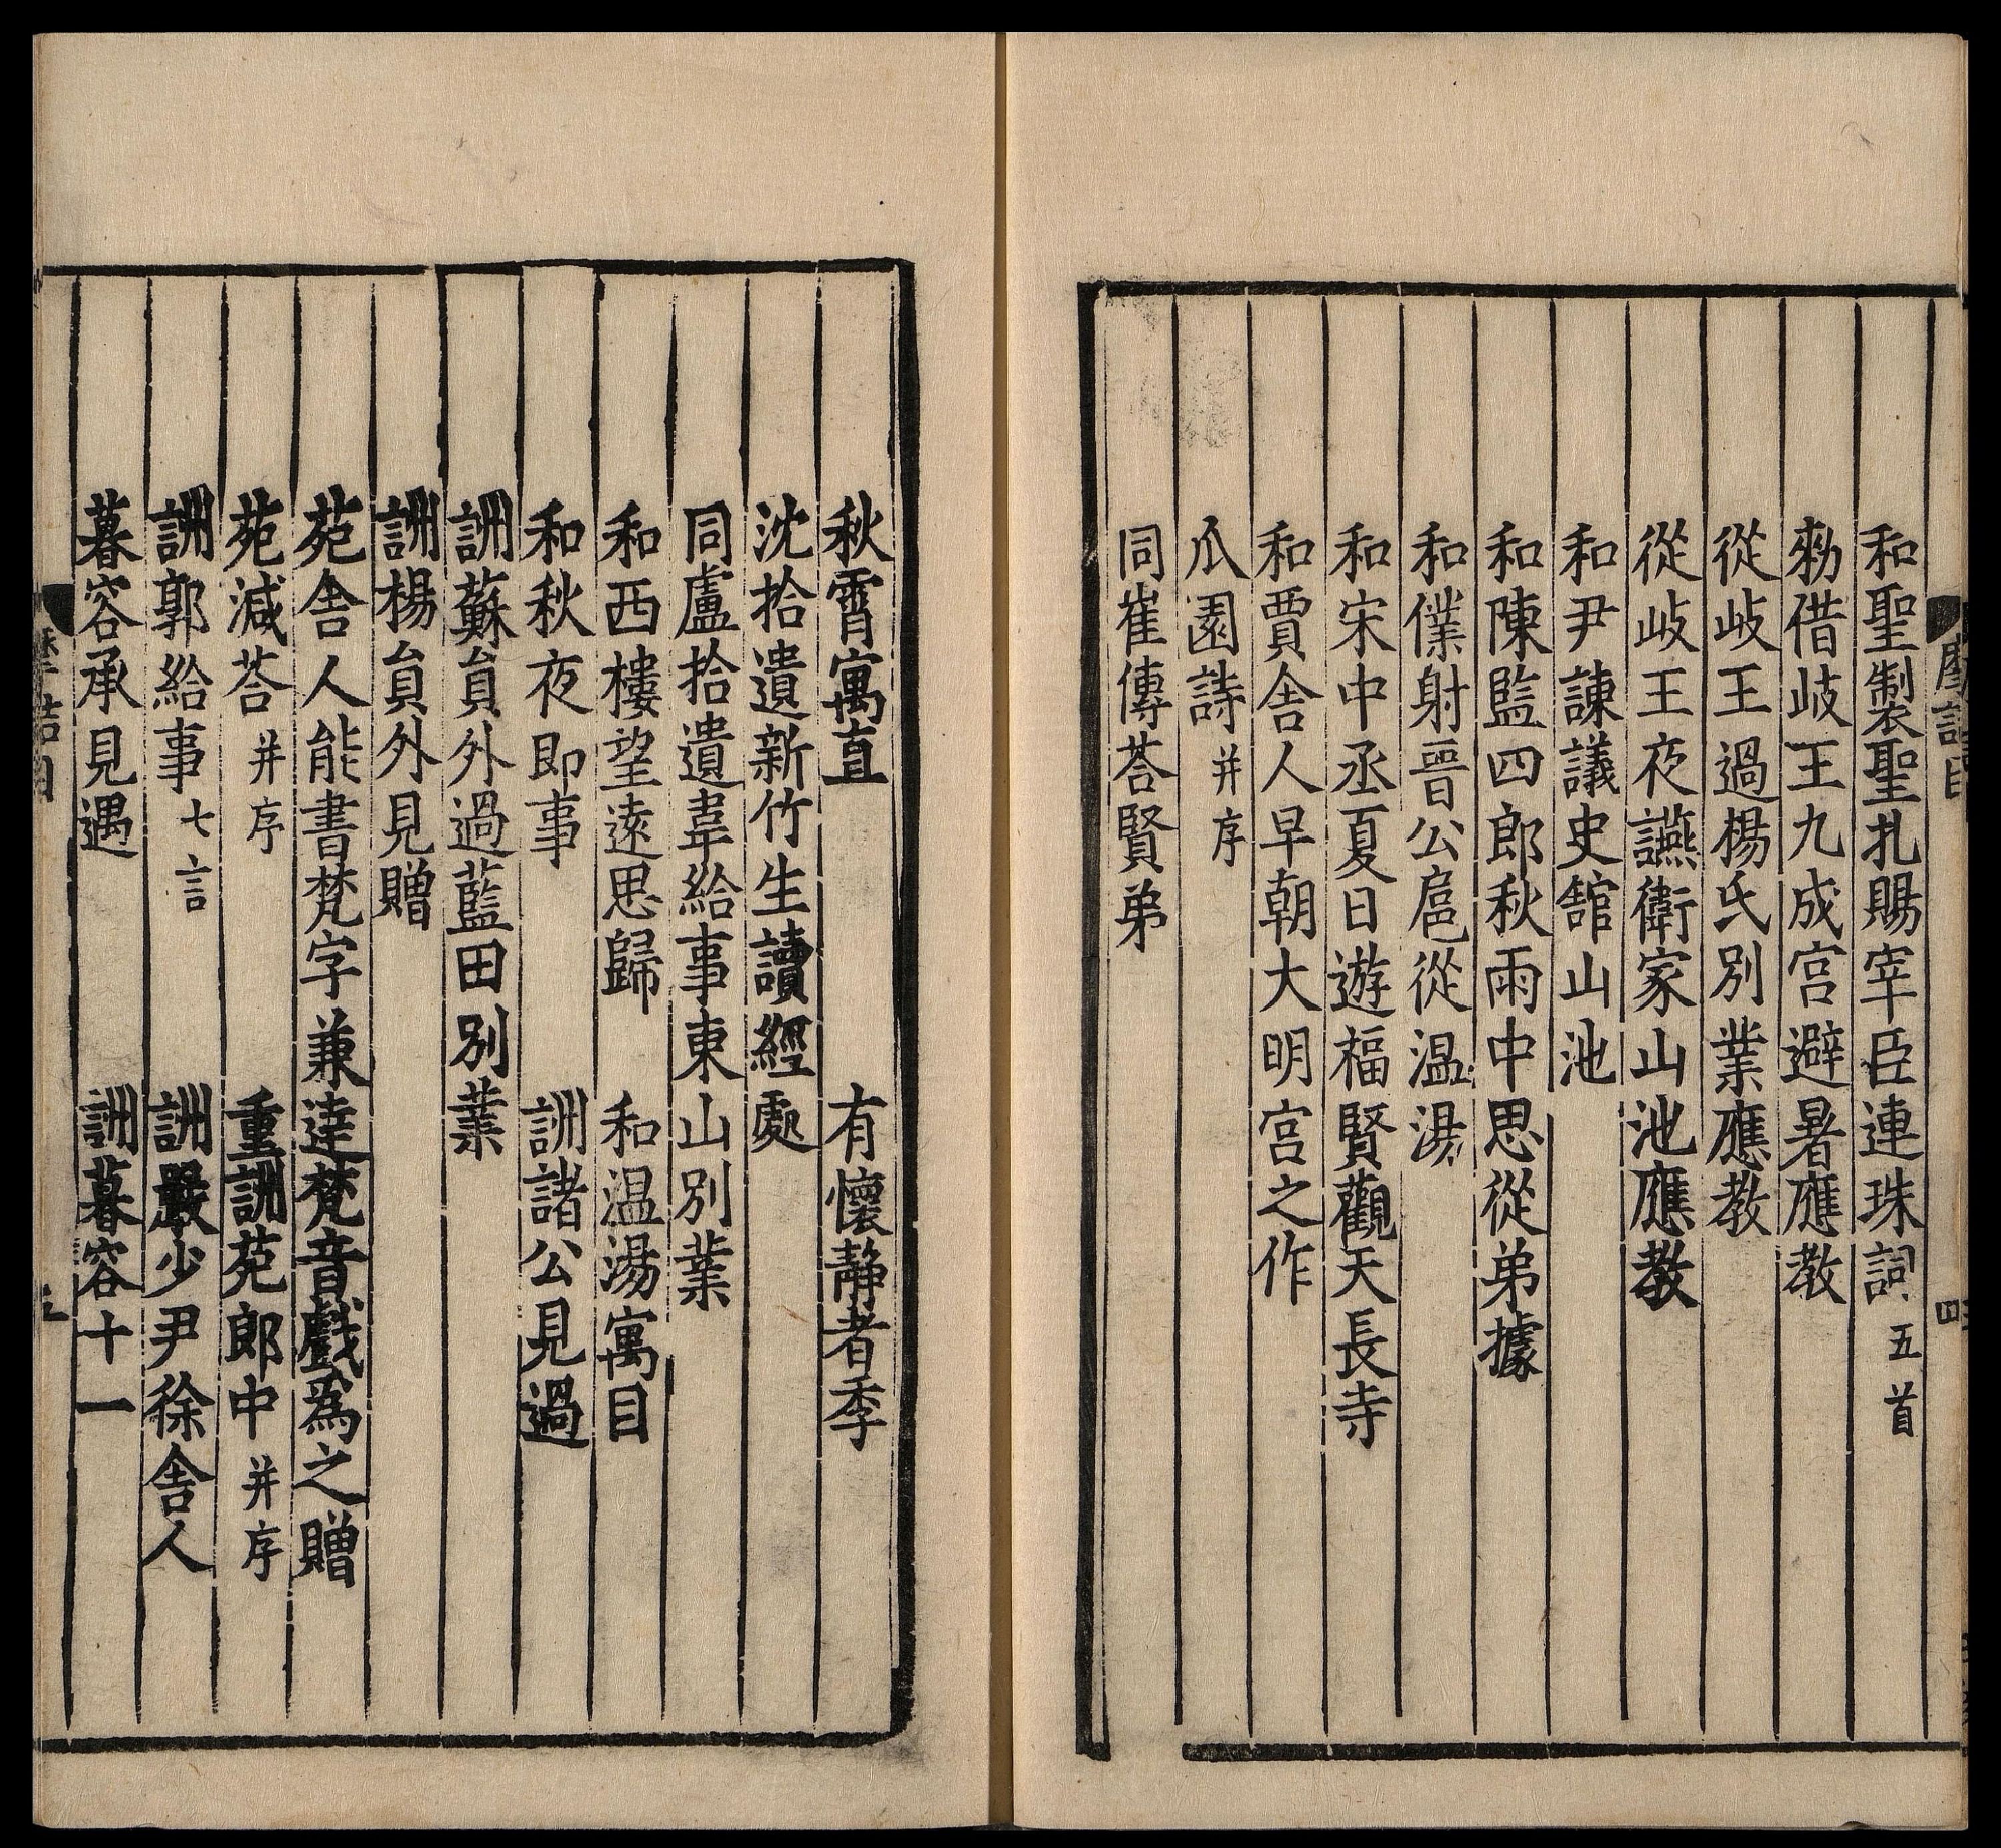 和聖製聖扎賜宰臣連珠詞五首
勑借岐王九成宫避暑應教
從岐王過楊氏別業應教
從岐王夜讌衛家山池應教
和尹諫議史舘山池
和陳監四郎秋雨中思從弟據
和僕射晉公扈從温湯
和宋中丞夏日遊福賢觀天長寺
和賈舎人早朝大明宫之作
瓜園詩并序
同崔傅荅賢弟
秋霄寓直　有懷静者季
沈拾遺新竹生讀經處
同盧拾遺韋給事東山別業
和西樓望遠思歸　和温湯寓目
和秋夜即事　詶諸公見過
詶蘇貟外過藍田別業
詶楊貟外見贈
苑舎人能書梵字兼達梵音戲為之贈
苑減荅并序　重詶苑郎中并序
詶郭給事七言　詶嚴少尹徐舎人
暮容承見遇　詶暮容十一